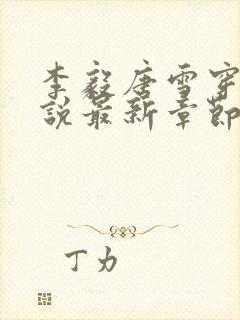 李毅唐雪穿
说最新章节
丁力